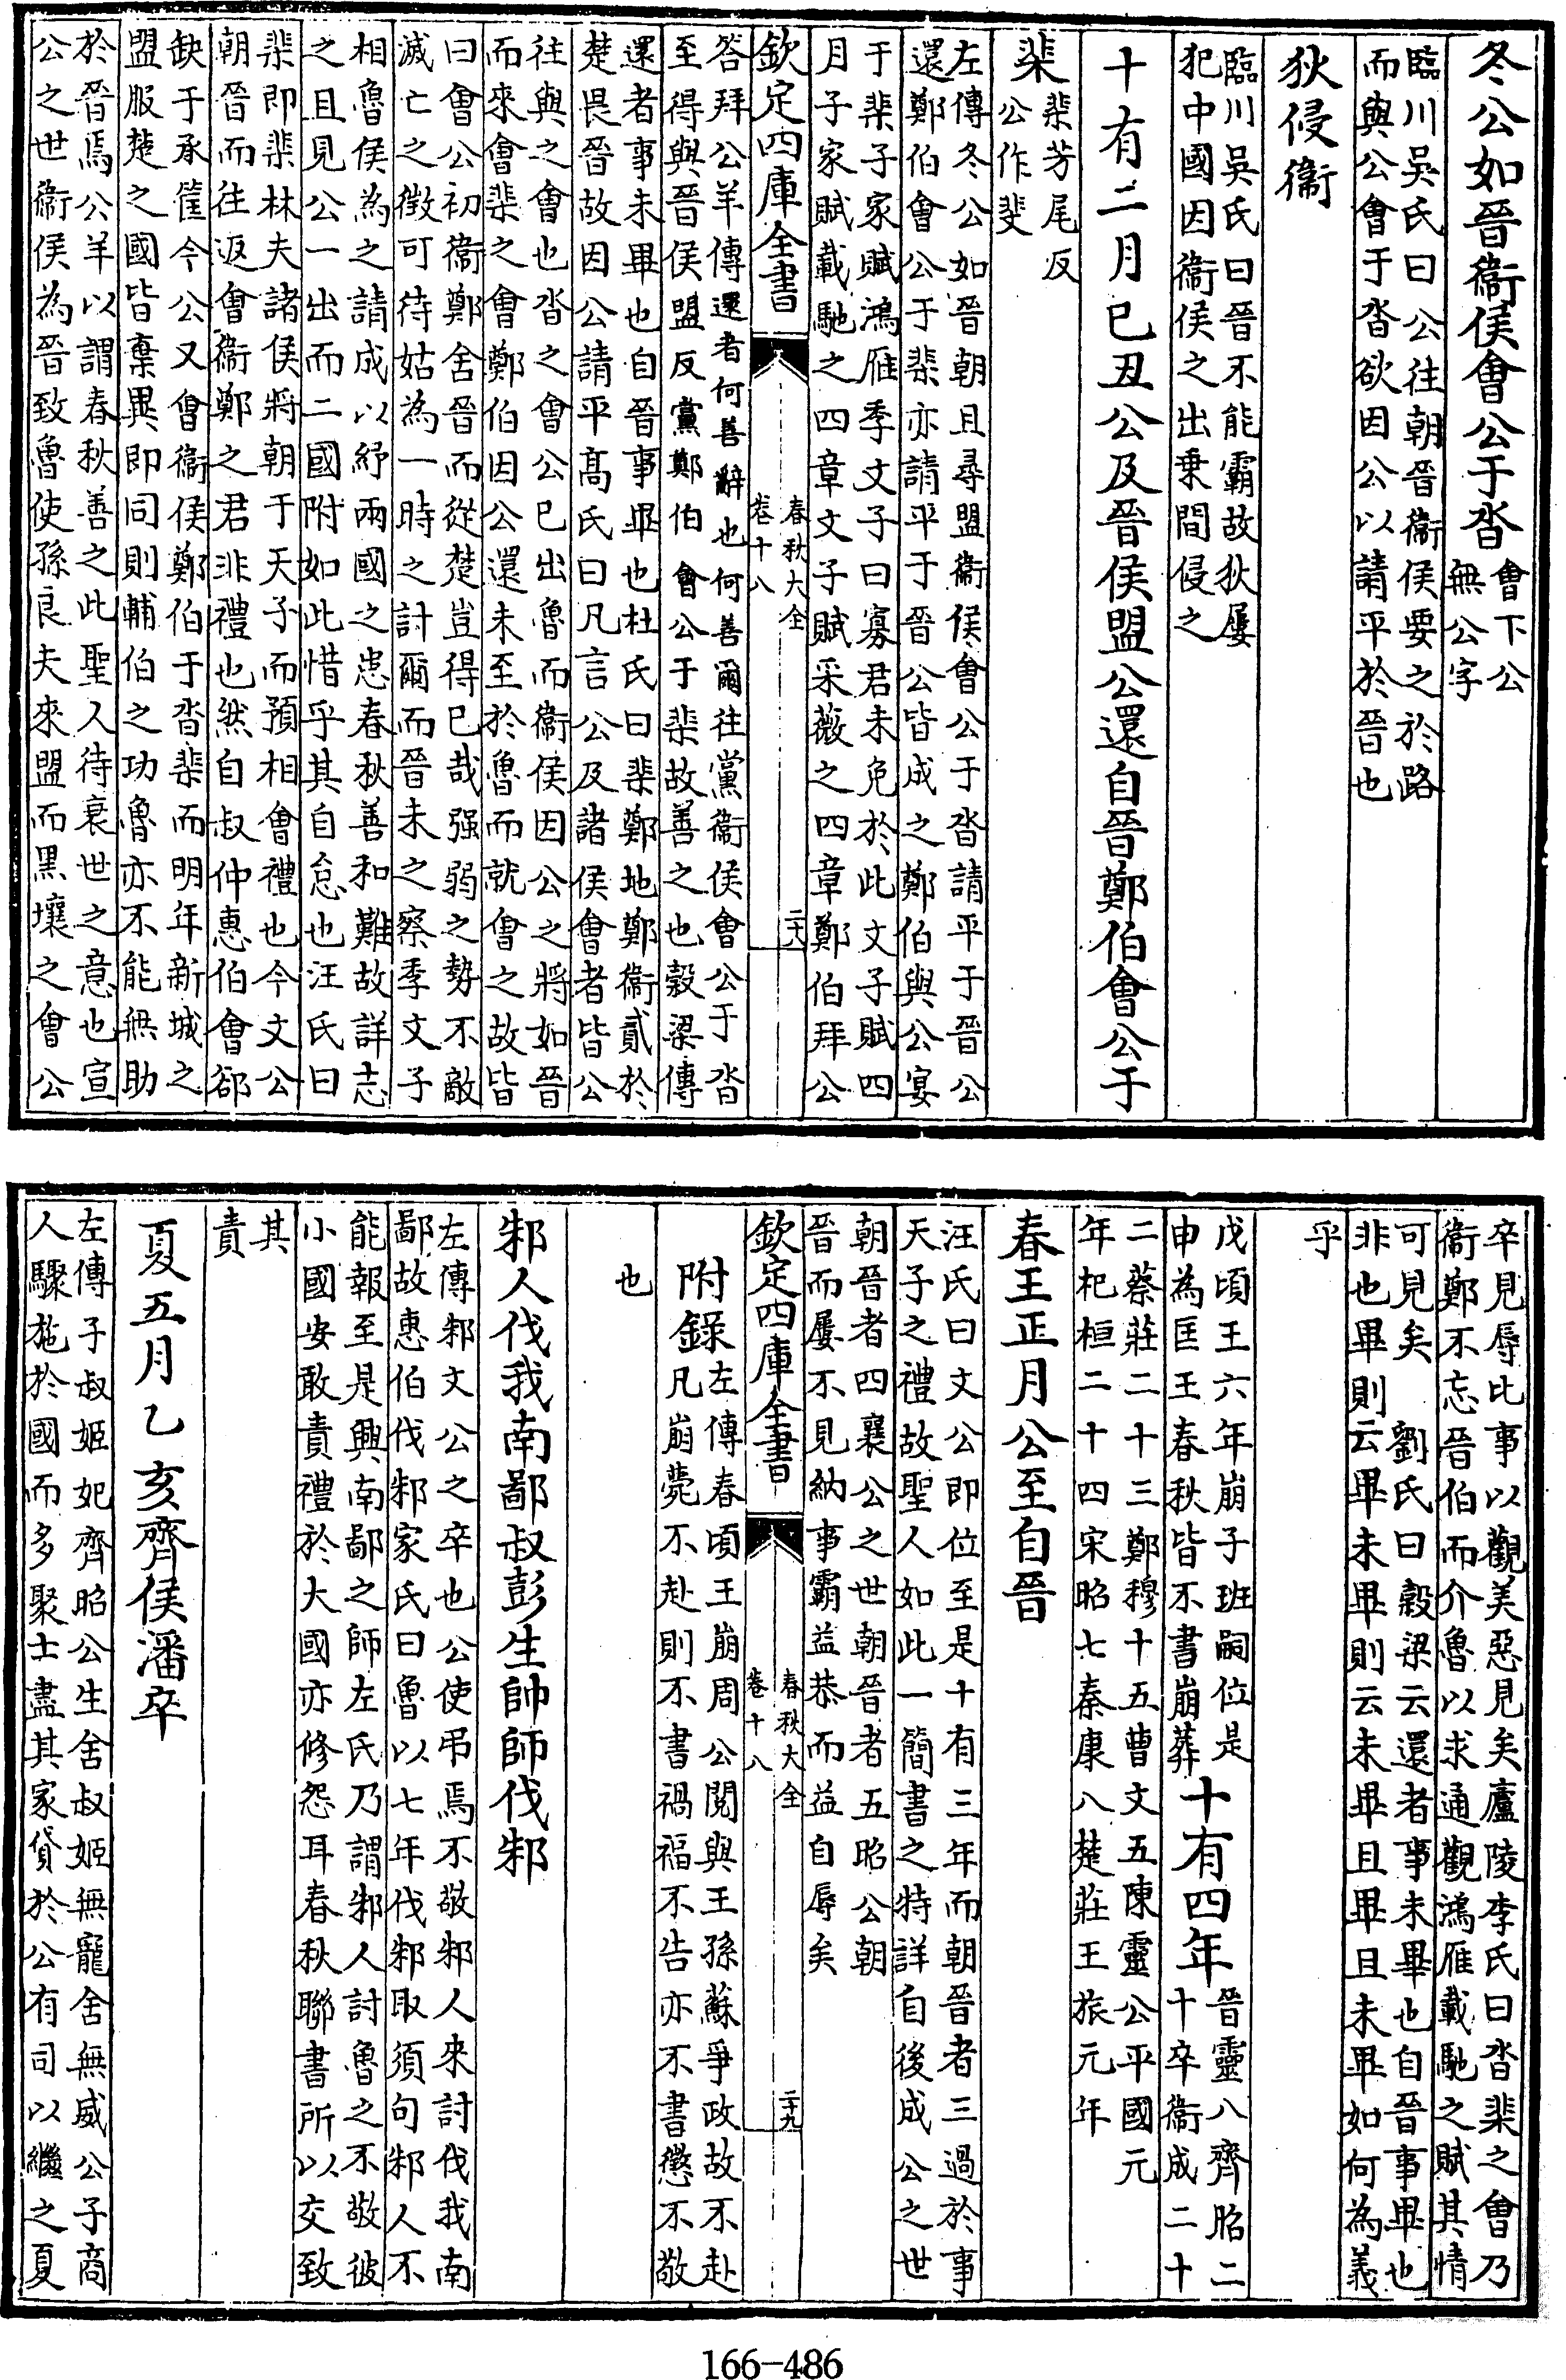 冬公如晉衞侯會公于沓會下公
無公字
臨川吳氏曰公往朝晉衞侯要之於路
而與公會于沓欲因公以請平於晉也
狄侵衞
臨川吳氏曰晉不能霸故狄屢
犯中國因衞侯之出乗間侵之
十有二月已丑公及晉侯盟公還自晉鄭伯會公于
棐棐芳尾反
公作斐
左傳冬公如晉朝且尋盟衞侯會公于沓請平于晉公
還鄭伯會公于棐亦請平于晉公皆成之鄭伯與公宴
于棐子家賦鴻雁季文子曰寡君未免於此文子賦四
月子家賦載馳之四章文子賦采薇之四章鄭伯拜公
欽定四庫全書
春秋大全
卷十八
二十八
答拜公羊傳還者何善辭也何善爾往黨衞侯會公于沓
至得與晉侯盟反黨鄭伯會公于棐故善之也榖梁傳
還者事未畢也自晉事畢也杜氏曰棐鄭地鄭衞貳於
楚畏晉故因公請平髙氏曰凡言公及諸侯會者皆公
往與之會也沓之會公已出魯而衞侯因公之將如晉
而來會棐之會鄭伯因公還未至於魯而就會之故皆
曰會公初衞鄭舍晉而從楚豈得已哉强弱之勢不敵
滅亡之徴可待姑為一時之討爾而晉未之察季文子
相魯侯為之請成以紓兩國之患春秋善和難故詳志
之且見公一出而二國附如此惜乎其自怠也汪氏曰
棐即棐林夫諸侯將朝于天子而預相會禮也今文公
朝晉而往返會衞鄭之君非禮也然自叔仲惠伯會郤
缺于承筐今公又會衞侯鄭伯于沓棐而明年新城之
盟服楚之國皆棄異即同則輔伯之功魯亦不能無助
於晉焉公羊以謂春秋善之此聖人待衰世之意也宣
公之世衞侯為晉致魯使孫良夫來盟而黑壤之會公
卒見辱比事以觀美惡見矣廬陵李氏曰沓棐之會乃
衞鄭不忘晉伯而介魯以求通觀鴻雁載馳之賦其情
可見矣　劉氏曰榖梁云還者事未畢也自晉事畢也
非也畢則云畢未畢則云未畢且畢且未畢如何為義
乎
戊頃王六年崩子班嗣位是
申為匡王春秋皆不書崩葬十有四年晉靈八齊昭二
十卒衞成二十
二蔡莊二十三鄭穆十五曹文五陳靈公平國元
年杞桓二十四宋昭七秦康八楚莊王旅元年
春王正月公至自晉
汪氏曰文公即位至是十有三年而朝晉者三過於事
天子之禮故聖人如此一簡書之特詳自後成公之世
朝晉者四襄公之世朝晉者五昭公朝
晉而屢不見納事霸益恭而益自辱矣
欽定四庫全書
春秋大全
卷十八
二十九
附錄左傳春頃王崩周公閱與王孫蘇爭政故不赴
凡崩薨不赴則不書禍福不告亦不書懲不敬
也
邾人伐我南鄙叔彭生帥師伐邾
左傳邾文公之卒也公使弔焉不敬邾人來討伐我南
鄙故惠伯伐邾家氏曰魯以七年伐邾取須句邾人不
能報至是興南鄙之師左氏乃謂邾人討魯之不敬彼
小國安敢責禮於大國亦修怨耳春秋聯書所以交致
其
責
夏五月乙亥齊侯潘卒
左傳子叔姬妃齊昭公生舍叔姬無寵舍無威公子商
人驟施於國而多聚士盡其家貸於公有司以繼之夏
166-486